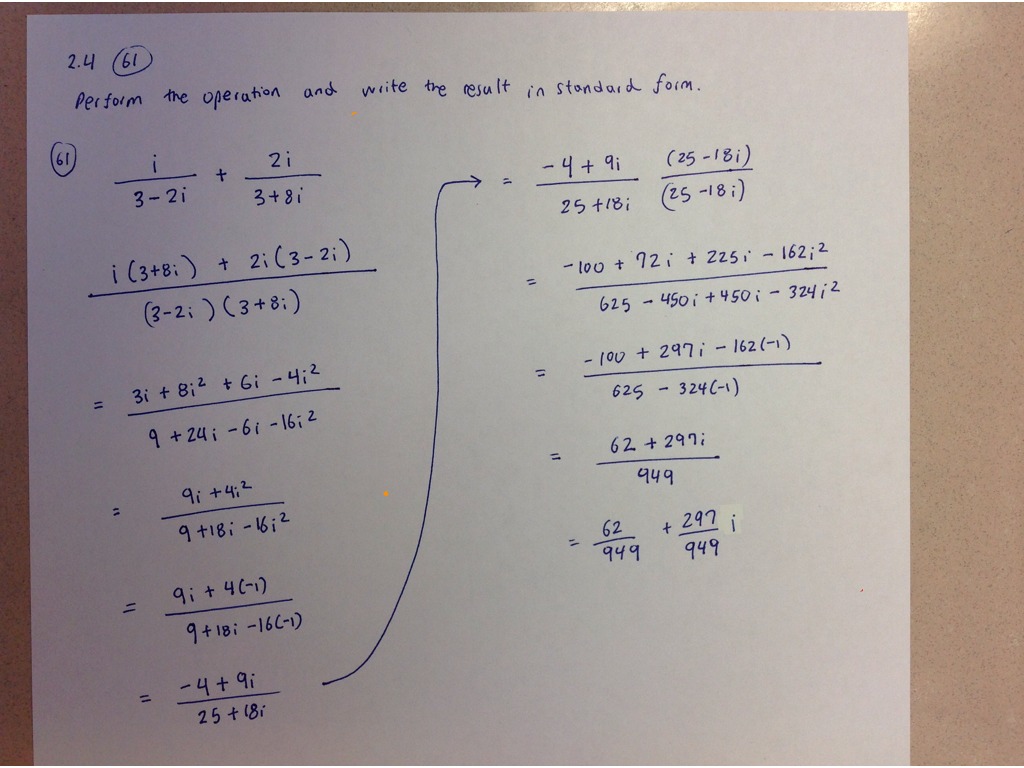 2.4 (61)
Perform the operation and write the result in standard form.
(61) i/(3-2i) + 2i/(3+8i)
(i(3+8i) + 2i(3-2i))/((3-2i)(3+8i))
= (3i + 8i² + 6i - 4i²)/(9 + 24i - 6i - 16i²)
= (9i + 4i²)/(9 + 18i - 16i²)
= (9i + 4(-1))/(9 + 18i - 16(-1))
= (-4 + 9i)/(25 + 18i)
→ = (-4 + 9i)/(25 + 18i) (25 - 18i)/(25 - 18i)
= (-100 + 72i + 225i - 162i²)/(625 - 450i + 450i - 324i²)
= (-100 + 297i - 162(-1))/(625 - 324(-1))
= (62 + 297i)/949
= 62/949 + 297/949 i